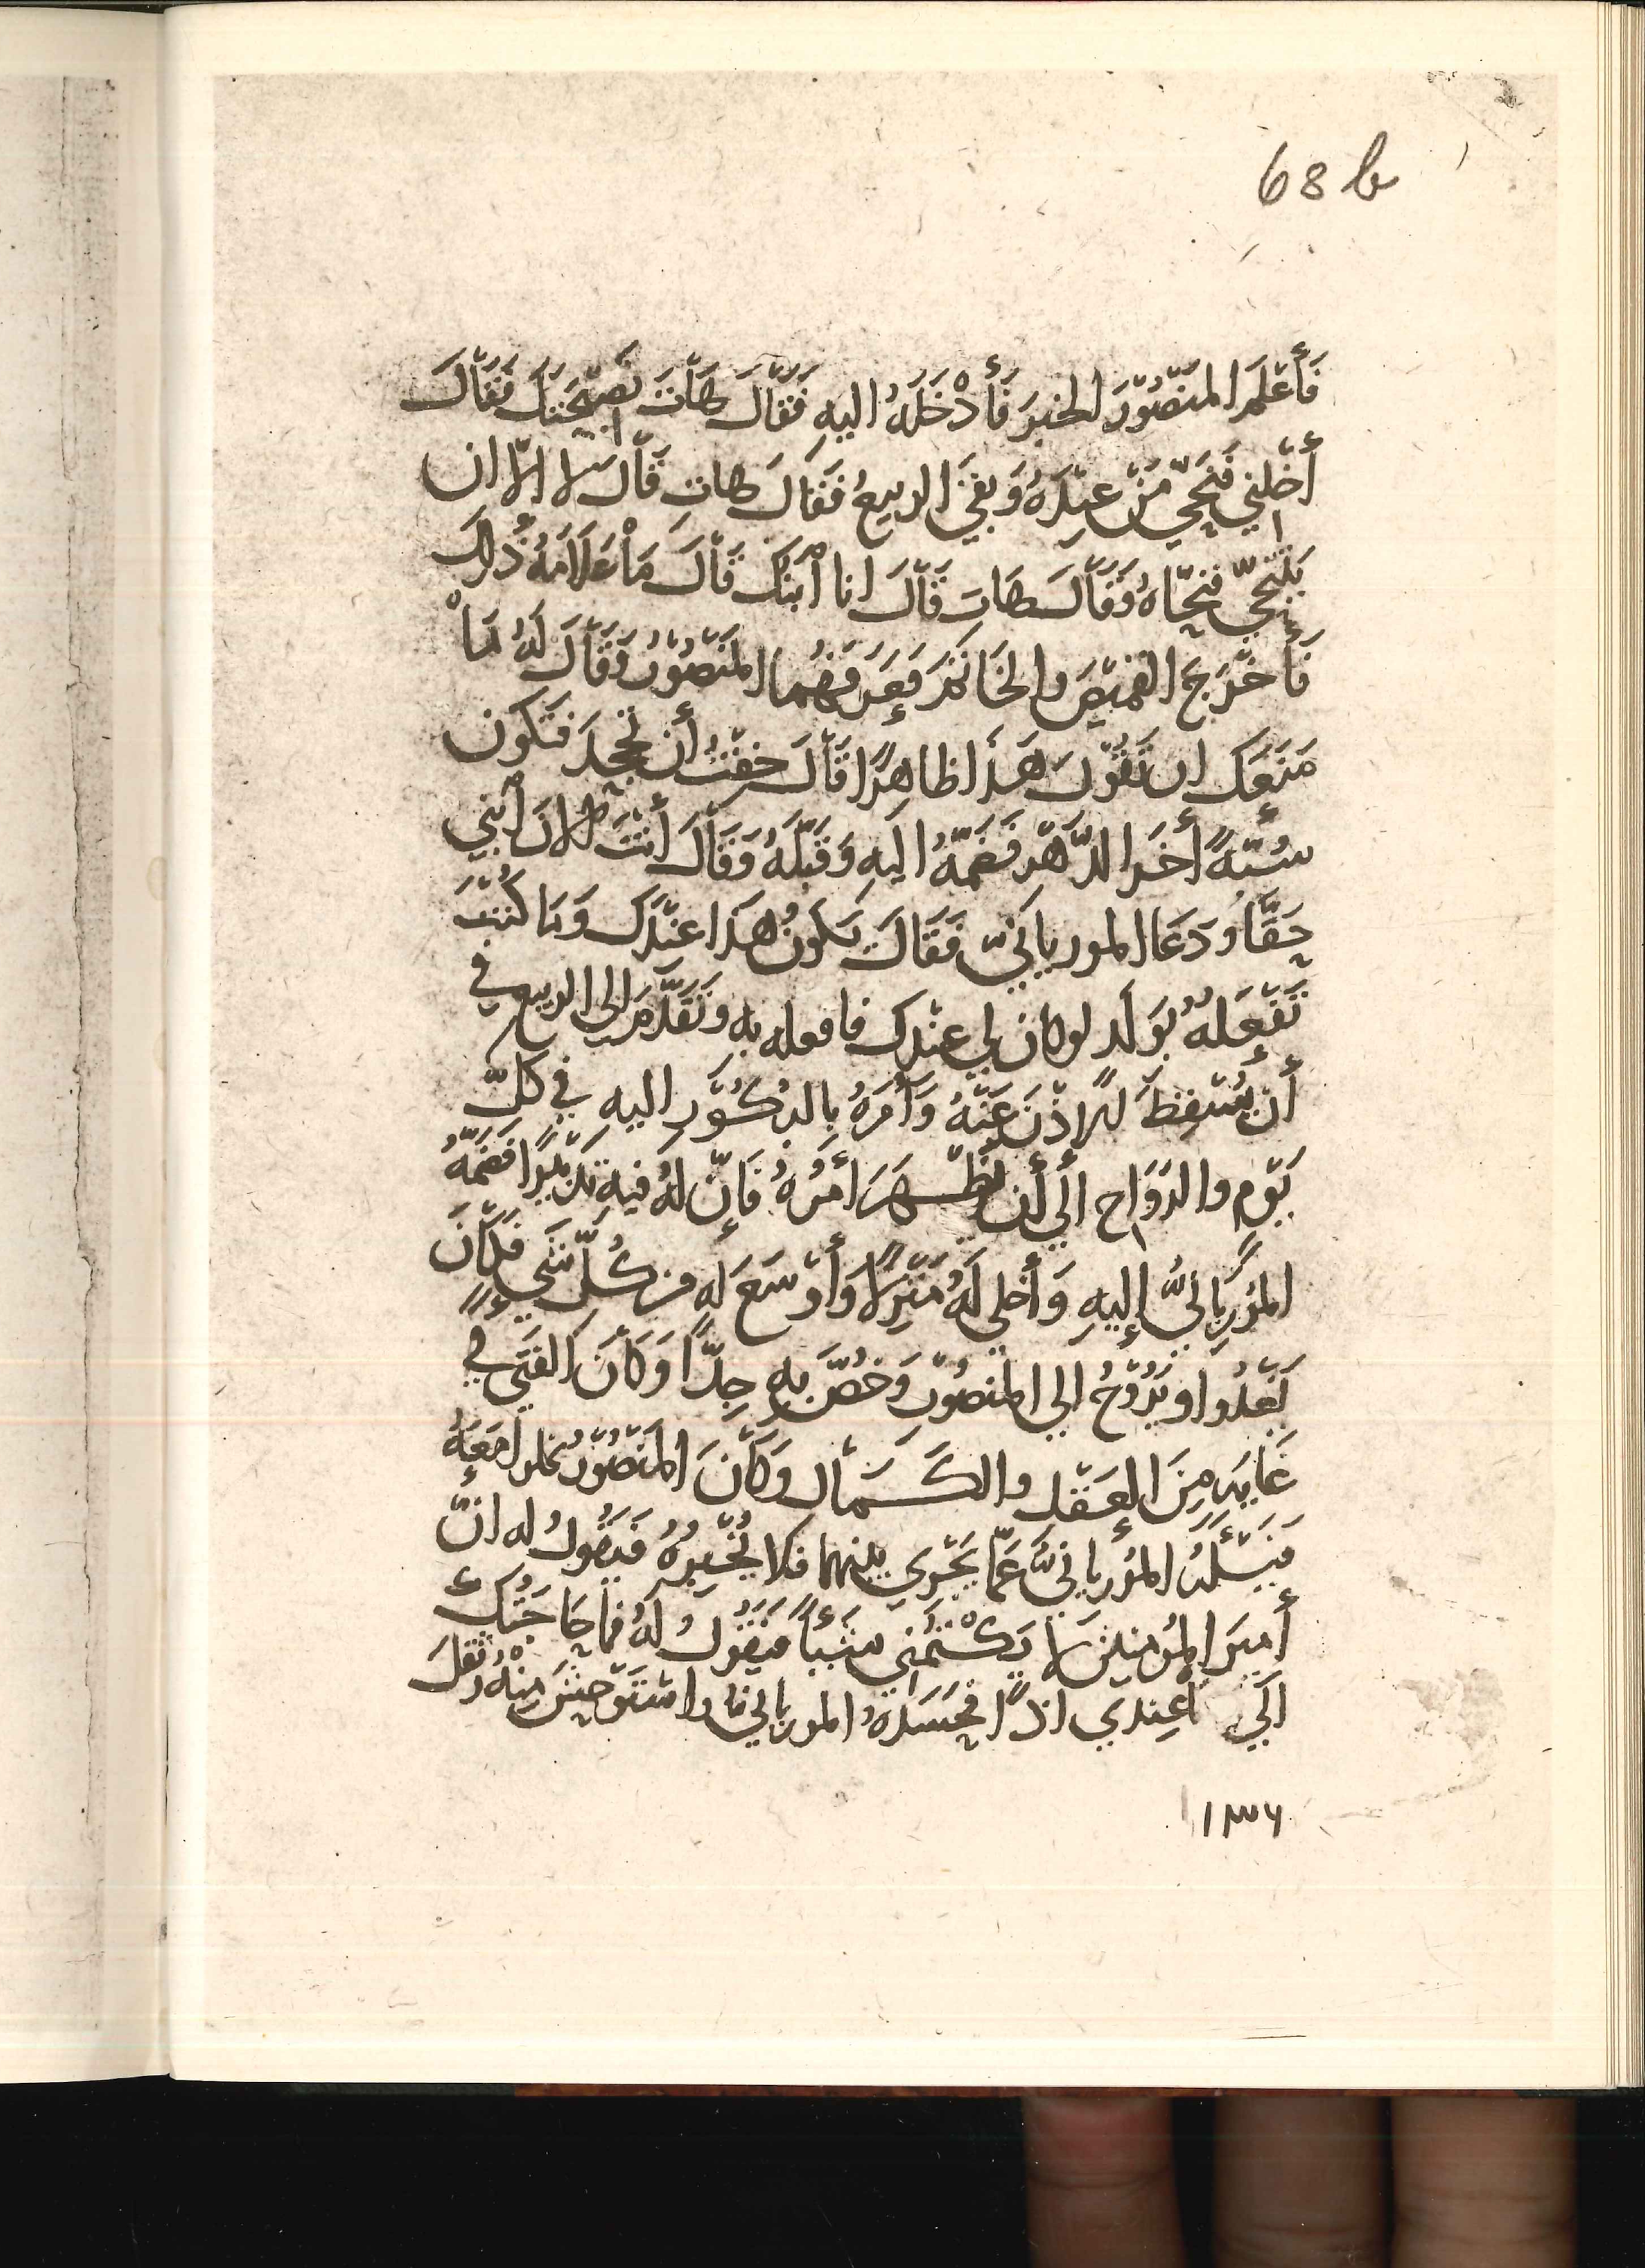 68 b
فَأَعْلَمَ المَنْصُوْرَ الخبَرَ فَأَدْخَلَهُ اليهِ فَقَالَ هَاتَ نَصِيْحَتَكَ فَقَالَ
أَخْلِنِي فَنَحَّي مَنْ عِنْدَهُ وَبقيَ الربيعُ فَقَالَ هات قَالَ لا الّا ان
يَتَنَحَّي فنحّاهُ وَقَالَ هَات قَالَ انا أبْنَكَ قَالَ مَاْ عَلَامَةُ ذَلِكَ
فَأَخْرَجَ القَمْيصَ والخَاتَمَ فَعَرَفَهُما المَنْصُوْرُ فَقَالَ لَهُ مَاْ
مَنَعَكَ ان تَقُوْلَ هَذَا ظاهِرًا قَالَ خِفْتُ أن تجحدَ فتكون
سُبّةً أخَر الدَّهْرَ فَضَمّهُ اليهِ وَقَبَّلَهُ وَقَالَ أنْتَ الانَ أبْنِي
حَقّاً وَدَعَا المورياَنيّ فَقَالَ يَكونُ هَذَا عِنْدَكَ وَمَا كُنْتَ
تَفْعَلهُ بوَلَد لو كان لي عِنْدكَ فافعله به وَتَقَدَّمَ الى الربيع في
أن يُسْقِطَ الإذْنَ عَنْهُ وَأمَرَهُ بالبُكُوْر اليه في كلّ
يَوْمٍ والرَوَاح الَي أن يظْهرَ أمْرُهُ فَإنّ لهُ فيهِ تدْبيْرًا فضَمّهُ
المُوْريَانيُّ إليهِ وَأخلي لَهُ مَنْزِلًا وَأوْسَعَ لهِ من كُلّ شَيٍ فكَانَ
يَغْدُوا ويَرُوْحُ الي المنصُوْر وَخصَّ بهِ جدّاً وَكانَ الفَتَي في
غَايه مِنَ العَقْل والكَمَال وَكَانَ المَنْصُوْرُ يخلوا مَعَهُ
فَيَسْئَلهُ المُوريانيَّ عَمّا يَجْري بينهما فلا يُخْبِرهُ فَيَقُولُ له انّ
أميرَ المؤمنينَ لا يَكْتُمُني شيْئاً فَيَقُوْلُ لهُ فمَا حَاجَتُكَ
الَي ما عِندي اذًا فحَسَدهُ الموريانيّ واسْتَوْحشَ مِنْهُ وثقلَ
١٣٦